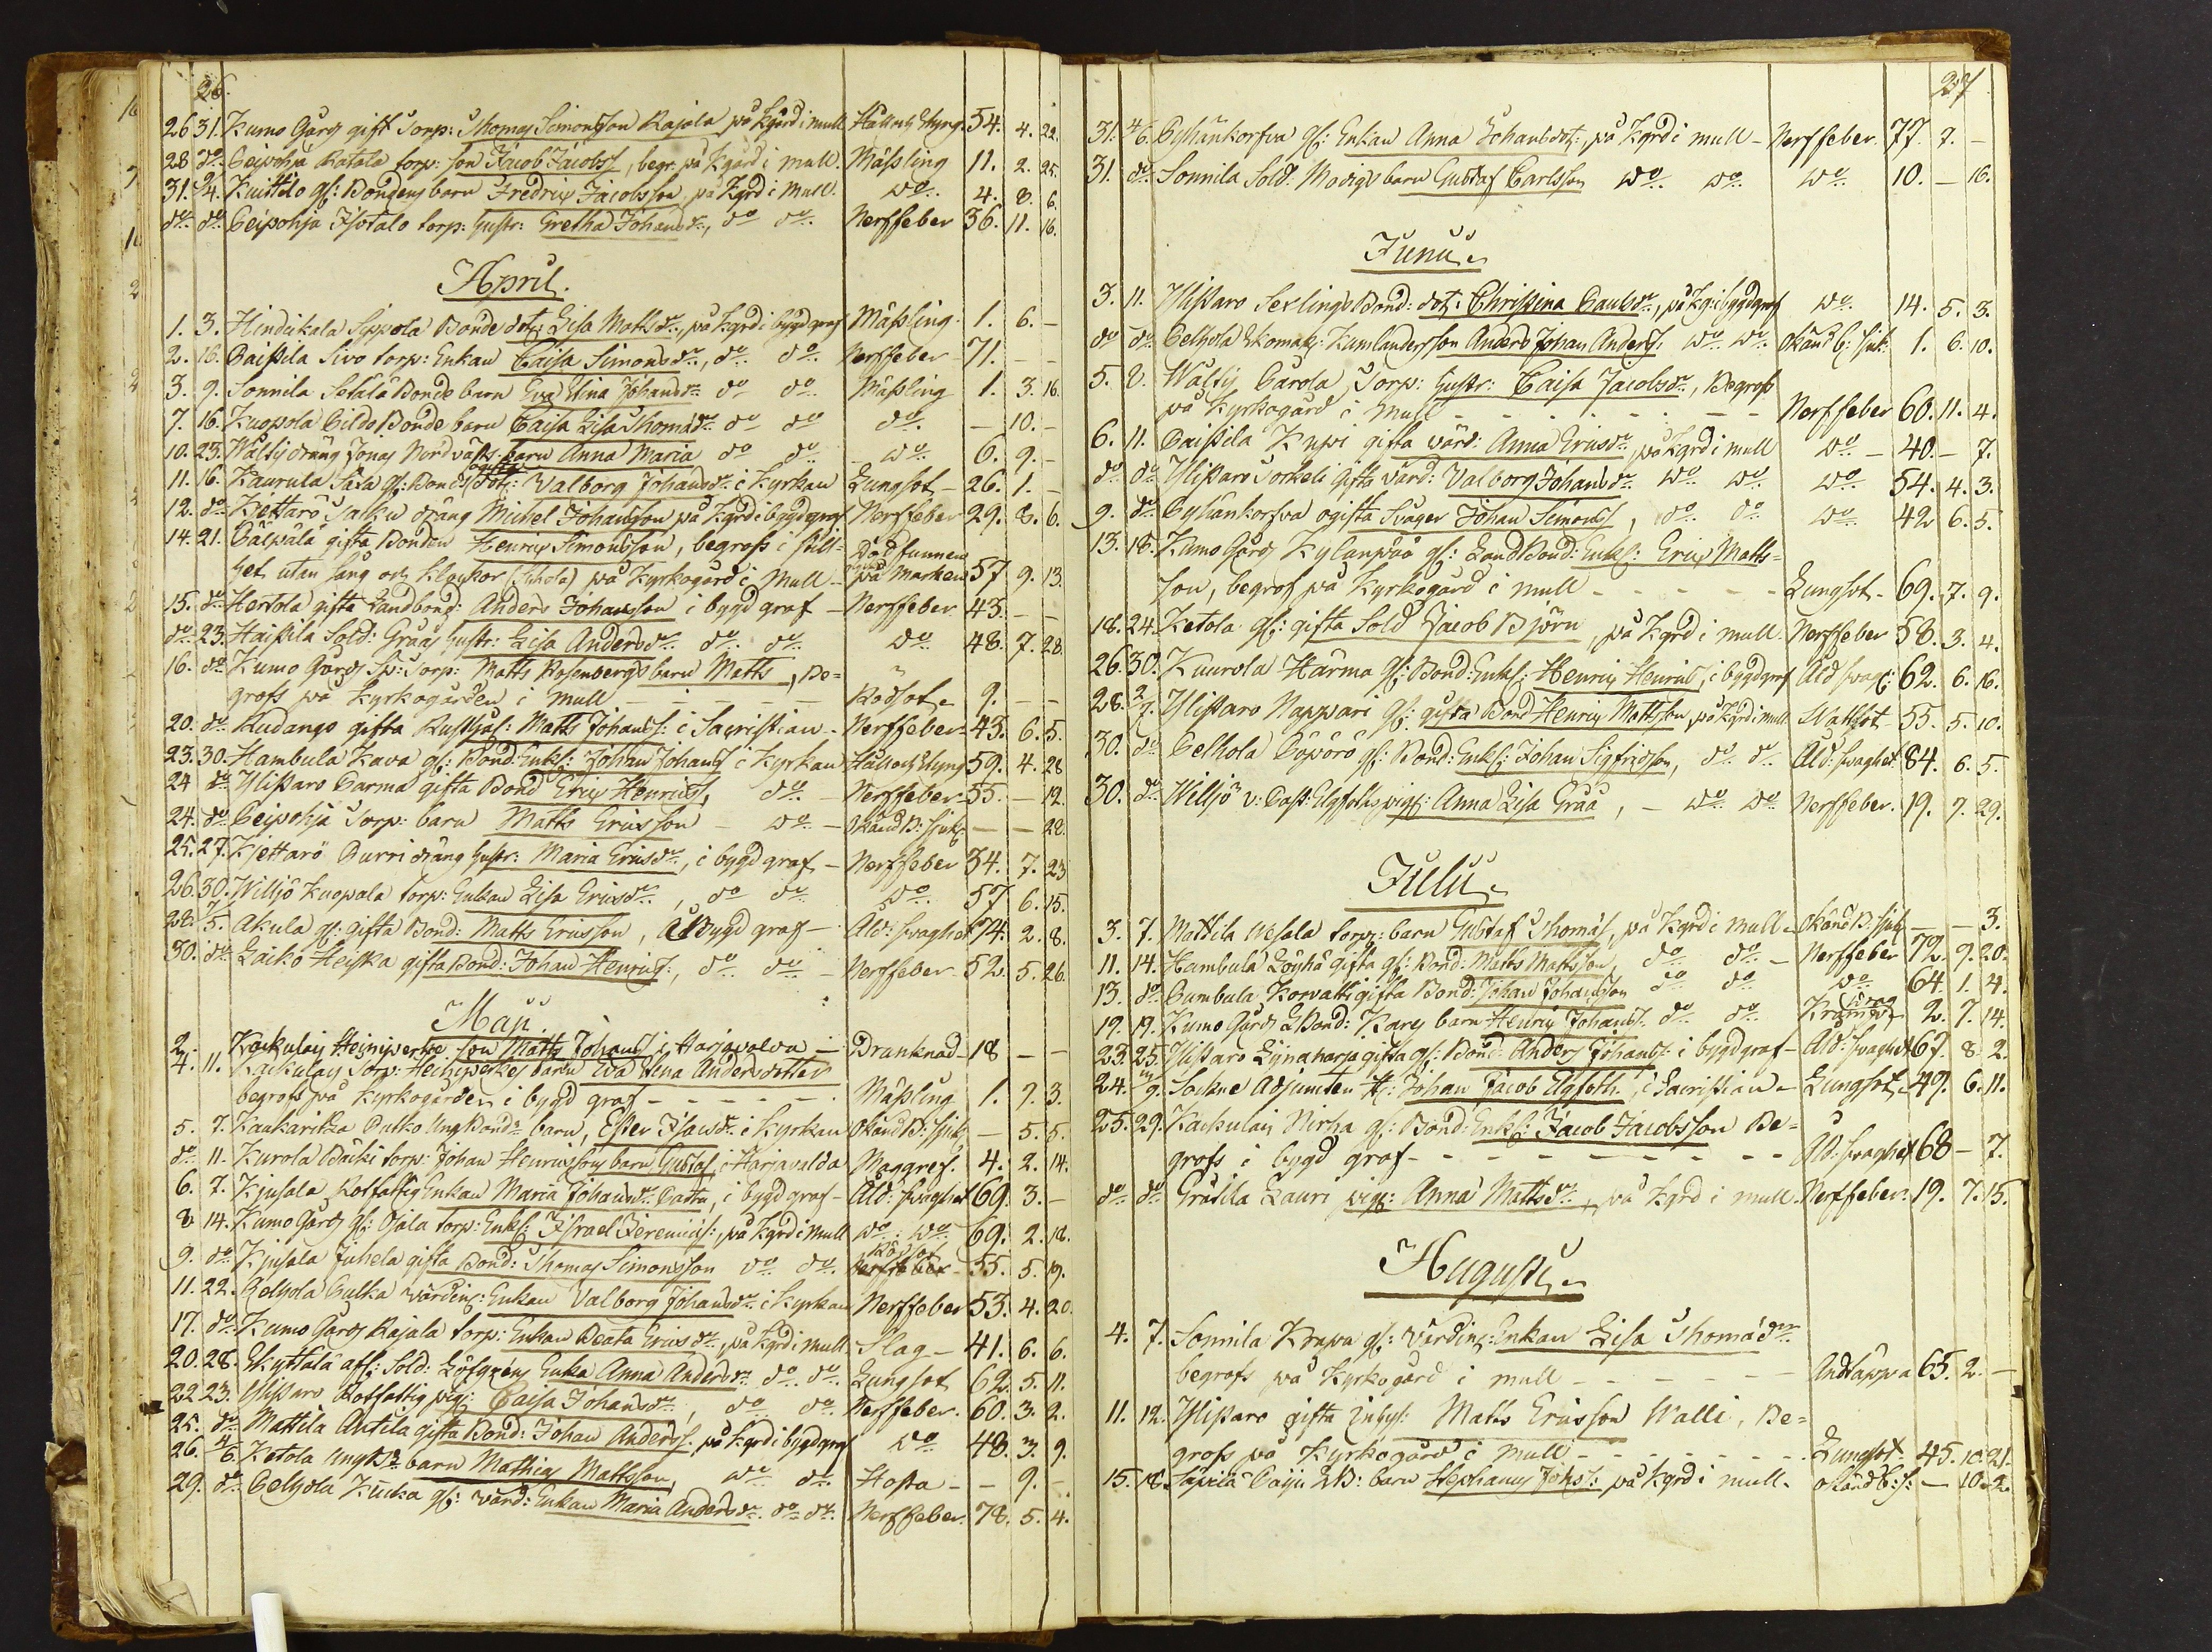 26.
26 31. Kumo Gårds gift Torp: Thomas Simonsson Rajala på Kgård i mull Håll och Styng. 54. 4. 22.
28 do Peipohja Ratala torp: son Jacob Jacobss, begr. på Kgård i mull. Mässling 11. 2. 25.
31. 2/4. Kuittilo gl: Bondens barn Fredrix Jacobsson, på Kgrd i Mull. do 4. 8. 6.
do do Peipohja Isotalo torp: hustr: Gretha Johansdr, do do Nerffeber 36. 11. 16.
April.
1. 3. Hindikala Sippola Bonde dotr Lisa Mattsdr, på Kgrd i bygd graf Mässling. 1. 6. –
2. 16. Paistila Sivo torp: Enkan Caisa Simonsdr, do do Nerffeber 71. – –
3. 9. Sonnila Setälä Bonde barn Eva Stina Johansdr do do Mässling 1. 3. 16.
7. 16. Kuopola Pildo Bonde barn Caisa Lisa Thomædr do do do – 10. –
10. 23. Wältis dräng Jonas Nordvalls barn Anna Maria do do do 6. 9. –
11. 16. Kaurula Saxa gl: Bond: ogifta dotr: Valborg Johansdr i Kyrkan Lungsot – 26. 1. –
12. do Kiettarö Jaska dräng Michel Johansson på Kgrd i bygd graf Nerffeber 29. 8. 6.
14. 21. Päipälä gifta Bonden Henrix Simonsson, begrofs i still-
het utan sång och klockor (Juhola) på Kyrkogård i Mull – Död funnen på marken 57 9. 13.
15. do Hertola gifta Landbond: Anders Johansson i bygd graf – Nerffeber 43. – –
do 23. Haistila Sold: Gråås hustr: Lisa Andersdr do do do 48. 7. 28.
16. do Kumo Gårds Sp: Torp: Matts Rosenbergs barn Matts, Be-
grofs på Kyrkogården i Mull – – – Rödsot – 9. – –
20. do Rudango gifta Rusthål: Matts Johanss: i Sacristian – Nerffeber – 43. 6. 5.
23. 30. Hambula Kava gl: Bond: Enkl: Johan Johanss i Kyrkan Håll och Styng 59. 4. 28
24 do Ylistaro Parma gifta Bond Erix Henricss, do – Nerffeber – 55. – 12.
24. do Peipohja Torp: barn Matts Ericsson – do – Okänd B: sjukd – – 28.
25. 27. Kjettarö Purri dräng hustr: Maria Ericsdr, i bygd graf – Nerffeber 34. 7. 23
26. 30. Willjo Kuopala torp: Enkan Lisa Ericsdr, do do do 57 6. 15.
28. 7/5. Akula gl: gifta Bond: Matts Ericsson, Bygd graf – Åld: svaghet 74. 2. 8.
30. do Laiko Heiska gifta Bond: Johan Henricss:, do do – Nerffeber 52. 5. 26.
Maji.
2. Kackulais Heinijerke son Matts Johanss i Harjavalda – Dranknad – 18 – –
4. 11. Kackulais Torp: Heinijerkes barn Eva Stina Andersdotter
begrofs på Kyrkogården i bygd graf – – – Mässling 1. 7. 3.
5. 7. Kaukaritza Putko Ung Bonds barn, Ester Isacsdr i Kyrkan Okänd B: sjukd – 5. 5.
do 11. Kurola Bäcki torp: Johan Henricssons barn Gustaf, i Harjavalda Maggref. 4. 2. 14.
6. 7. Kjusala Rotfattig Enkan Maria Johansdr Pattu, i bygd graf – Åld: svaghet 69. 3. –
8 14. Kumo Gårds gl: Ojala torp: Enkl: Israel Jeremiæs:, på Kgrd i Mull do do 69. 2. 18.
9. do Kjusala Juhela gifta Bond: Thomas Simonsson do do Rödsot 55. 5. 19.
11. 22. Pelhola Pulka värdins: Enkan Valborg Johansdr i Kyrkan Nerffeber 53. 4. 20.
17. do Kumo Gårds Rajala torp: Enkan Beata Ericsdr, på Kgrd i mull Slag – 41. 6. 6.
20. 28. Skyttälä afsk: Sold: Löfgréns Enka Anna Andersdr do do Lungsot 62. 5. 11.
22 23. Ylistaro Rotfattig pig: Caisa Johansdr, do do Nerffeber. 60. 3. 2.
25. do Mattila Antila gifta Bond: Johan Anderss. på Kgrd i bygd graf do 48. 3. 9.
26. 4/6. Ketola Ung Bds barn Mathias Mattsson, do do Hosta – – 9. –
29. do Pelhola Kiucka gl: värd: Enkan Maria Andersdr. do do Nerffeber. 78. 5. 4.
27
31. 4/6. Pyhänkorfva gl: Enkan Anna Johansdotr, på Kgrd i mull – Nerffeber. 77. 7. –
31. do Sonnila Sold. Modigs barn Gustaf Carlsson do do do 10. – 16.
Junii
3. 11. Ylistaro Sexlings Bond: dotr: Christina Paulsdr, på Kg: i bygd graf do 14. 5. 3.
do do Pelhola Skomak: Kumlandersson Anders Johan Anderss. do do Okänd b: sjuk: 1. 6. 10.
5. 8. Wältis Parola Torp: hustr: Caisa Jacobsdr, Begrofs
på Kyrkogård i Mull – – – Nerffeber 60. 11. 4.
6. 11. Paistila Knpi gifta värd: Anna Ericsdr, på Kgrd i mull do – 40. – 7.
do do Ylistaro Torkeli Gifta värd: Valborg Johansdr do do do 54. 4. 3.
9. do Pyhänkorfva ogifta Svåger Johan Simonss, do do do 42 6. 5.
13. 18. Kumo Gårds Kylänpää gl: Land Bond: Enkl: Erix Matts-
son, begrof på Kyrkogård i mull – – – Lungsot – 69. 7. 9.
18. 24. Ketola gl: gifta Sold Jacob Björn, på Kgrd i mull. Nerffeber 58. 3. 4.
26. 30. Kaurola Härma gl: Bond: Enkl: Henrix Henrics, i bygd graf Åld svagh: 62. 6. 16.
28. 2/7. Ylistaro Nappari gl: gifta Bond Henrix Mattsson, på Kgrd i mull Wattsot 55. 5. 10.
30. do Pelhola Pöpörö gl: Bond: Enkl: Johan Sigfridsson, do do Åld: svaghet 84. 6. 5.
30. do Willjo v: Past: Elgfoths pig: Anna Lisa Gråå, – do do Nerffeber. 19. 7. 29.
Julii
3. 7. Mattila Uusala torp: barn Gustaf Thomæs, på Kgrd i mull – Okänd B: sjukd – – 3.
11. 14. Hambula Löyhä gifta gl: Bond: Matts Mattsson, do do – Nerffeber 72. 9. 20.
13. do Cumbula Korvatti gifta Bond: Johan Johansson do do do 64. 1. 4.
19. 19. Kumo Gårds LBond: Kares barn Henrix Johanss: do do 2. 7. 14.
23. 25. Ylistaro Lijnaharja gifta gl: Bond: Anders Johanss: i bygd graf – Åld: svaghet 67. 8 2.
24. 9. Sockne Adjuncten H: Johan Jacob Elgfoth, i Sacristian – Lungsot – 49. 6. 11.
25. 29. Kackulais Nirha gl: Bond: Enkl: Jacob Jacobsson Be-
grofs i bygd graf – – – Åld: svaghet 68 – 7.
do do Gräsila Lauri pig: Anna Mattsdr, på Kgrd i mull. Nerffeber. 19. 7. 15.
Augusti
4. 7. Sonnila Krapa gl: Värdins: Enkan Lisa Thomædr
begrofs på Kyrkogård i mull – – – Andtäppa 65. 2. –
11. 12. Ylistaro gifta Inhys: Matts Ericsson Walli, Be-
grofs på Kyrkogård i mull – – – Lungsot 45. 10. 21.
15. 18. Säpilä Paiju LB: barn Stephanus Johss: på Kgrd i mull. okänd b: s: – 10. 2.